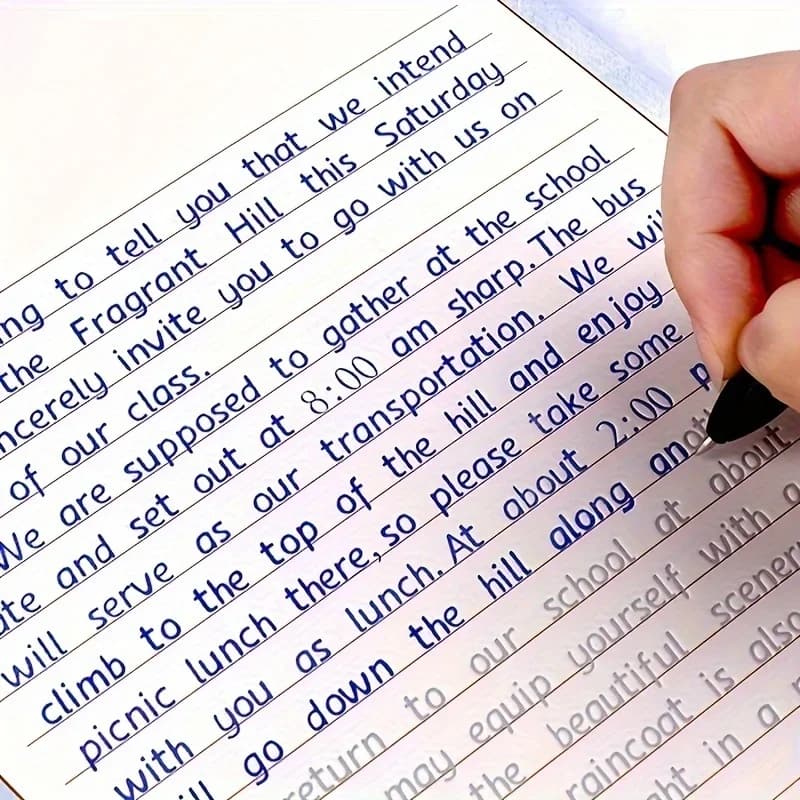 ng to tell you that we intend
the Fragrant Hill this Saturday
ncerely invite you to go with us on
of our class.
We are supposed to gather at the school
ate and set out at 8:00 am sharp. The bus
will serve as our transportation. We wi
climb to the top of the hill and enjoy
picnic lunch there, so please take some
with you as lunch. At about 2:00 p
ill go down the hill along anoth
return to our school at about
may equip yourself with a
the beautiful scenery
raincoat is also
ght in a